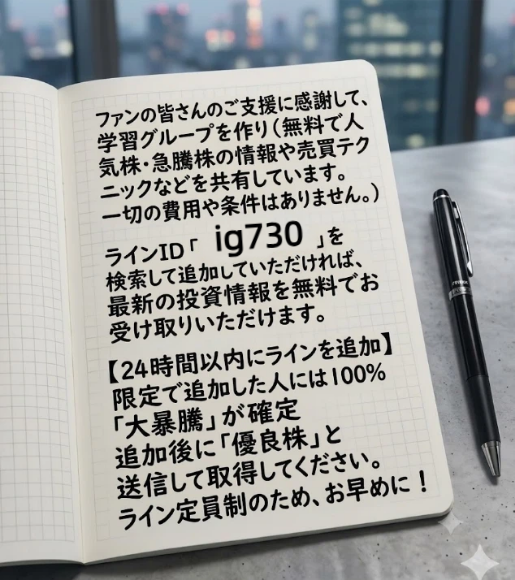 ファンの皆さんのご支援に感謝して、
学習グループを作り(無料で人
気株・急騰株の情報や売買テク
ニックなどを共有しています。
一切の費用や条件はありません。)
ラインID「 ig730 」を
検索して追加していただければ、
最新の投資情報を無料でお
受け取りいただけます。
【24時間以内にラインを追加】
限定で追加した人には100%
「大暴騰」が確定
追加後に「優良株」と
送信して取得してください。
ライン定員制のため、お早めに!